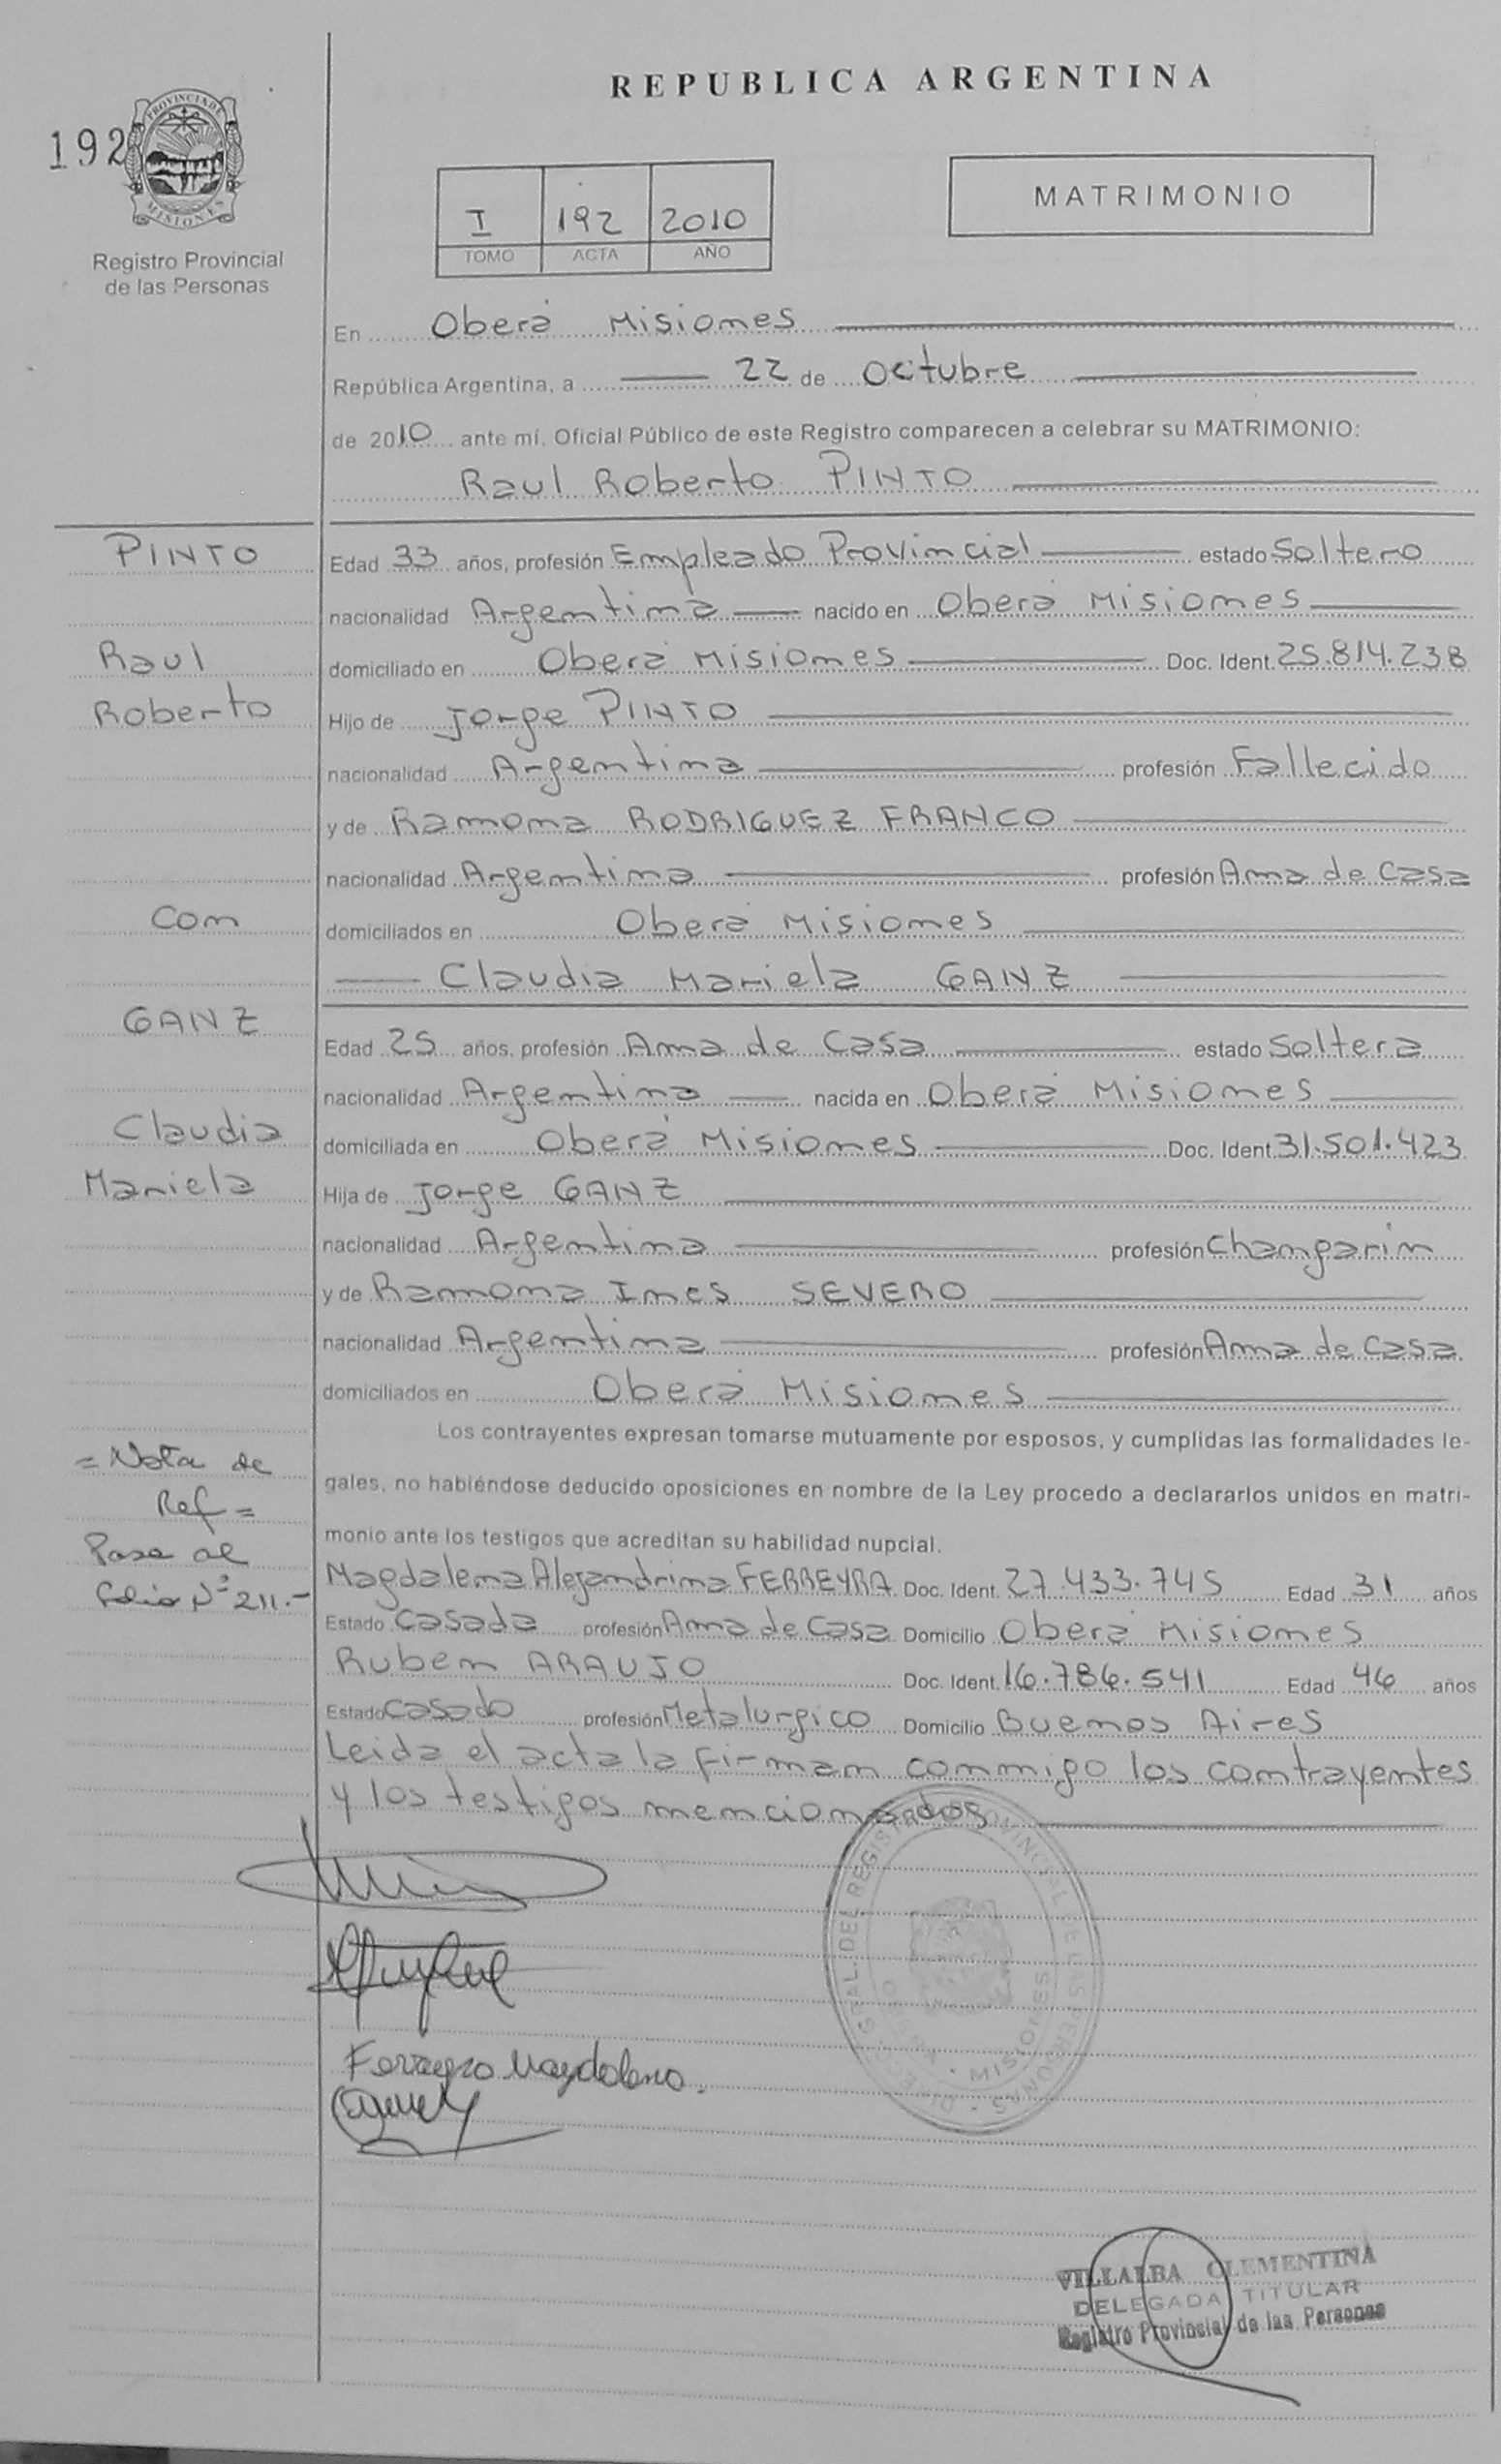 REPUBLICA ARGENTINA
192
PROVINCIA DE
MISIONES
Registro Provincial
de las Personas
I 192 2010
TOMO ACTA AÑO
MATRIMONIO
En Oberá Misiones
República Argentina, a 22 de Octubre
de 2010 ante mí, Oficial Público de este Registro comparecen a celebrar su MATRIMONIO:
Raul Roberto PINTO
PINTO
Edad 33 años, profesión Empleado Provincial estado Soltero
nacionalidad Argentina nacido en Oberá Misiones
Raul
domiciliado en Oberá Misiones Doc. Ident. 25.814.238
Roberto
Hijo de Jorge PINTO
nacionalidad Argentina profesión Fallecido
y de Ramona RODRIGUEZ FRANCO
nacionalidad Argentina profesión Ama de Casa
Con
domiciliados en Oberá Misiones
Claudia Mariela GANZ
GANZ
Edad 25 años, profesión Ama de Casa estado Soltera
nacionalidad Argentina nacida en Oberá Misiones
Claudia
domiciliada en Oberá Misiones Doc. Ident. 31.501.423
Mariela
Hija de Jorge GANZ
nacionalidad Argentina profesión Changarin
y de Ramona Ines SEVERO
nacionalidad Argentina profesión Ama de Casa
domiciliados en Oberá Misiones
Los contrayentes expresan tomarse mutuamente por esposos, y cumplidas las formalidades le-
= Nota de
gales, no habiéndose deducido oposiciones en nombre de la Ley procedo a declararlos unidos en matri-
Ref =
monio ante los testigos que acreditan su habilidad nupcial.
Pasa al
Magdalena Alejandrina FERREYRA Doc. Ident. 27.433.745 Edad 31 años
folio Nº 211.-
Estado Casada profesión Ama de Casa Domicilio Oberá Misiones
Ruben ARAUJO Doc. Ident. 16.786.541 Edad 46 años
Estado Casado profesión Metalurgico Domicilio Buenos Aires
Leida el acta la firman conmigo los contrayentes
y los testigos mencionados
DEL REGISTRO PROVINCIAL DE LAS PERSONAS
OBERA • MISIONES
Ferreyra Magdalena.
VILLALBA CLEMENTINA
DELEGADA TITULAR
Registro Provincial de las Personas